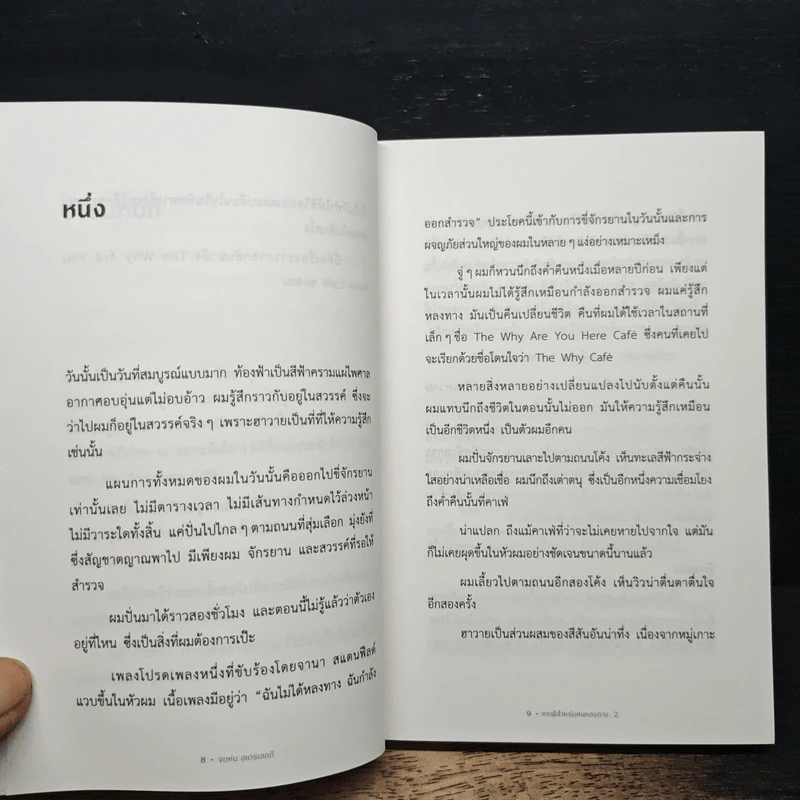 หนึ่ง
วันนั้นเป็นวันที่สมบูรณ์แบบมาก ท้องฟ้าเป็นสีฟ้าครามแผ่ไพศาล
อากาศอบอุ่นแต่ไม่อบอ้าว ผมรู้สึกราวกับอยู่ในสวรรค์ ซึ่งจะ
ว่าไปผมก็อยู่ในสวรรค์จริงๆ เพราะฮาวายเป็นที่ที่ให้ความรู้สึก
เช่นนั้น
แผนการทั้งหมดของผมในวันนั้นคือออกไปขี่จักรยาน
เท่านั้นเลย ไม่มีตารางเวลา ไม่มีเส้นทางกำหนดไว้ล่วงหน้า
ไม่มีวาระใดทั้งสิ้น แค่ปั่นไปไกลๆ ตามถนนที่สุ่มเลือก มุ่งยังที่
ซึ่งสัญชาตญาณพาไป มีเพียงผม จักรยาน และสวรรค์ที่รอให้
สำรวจ
ผมปั่นมาได้ราวสองชั่วโมง และตอนนี้ไม่รู้แล้วว่าตัวเอง
อยู่ที่ไหน ซึ่งเป็นสิ่งที่ผมต้องการเป๊ะ
เพลงโปรดเพลงหนึ่งที่ขับร้องโดยจานา สแตนฟิลด์
แวบขึ้นในหัวผม เนื้อเพลงมีอยู่ว่า “ฉันไม่ได้หลงทาง ฉันกำลัง
8 • จอห์น สเตรเลกกี
ออกสำรวจ” ประโยคนี้เข้ากับการขี่จักรยานในวันนั้นและการ
ผจญภัยส่วนใหญ่ของผมในหลายๆ แง่อย่างเหมาะเหม็ง
จู่ๆ ผมก็หวนนึกถึงค่ำคืนหนึ่งเมื่อหลายปีก่อน เพียงแต่
ในเวลานั้นผมไม่ได้รู้สึกเหมือนกำลังออกสำรวจ ผมแค่รู้สึก
หลงทาง มันเป็นคืนเปลี่ยนชีวิต คืนที่ผมได้ใช้เวลาในสถานที่
เล็กๆ ชื่อ The Why Are You Here Café ซึ่งคนที่เคยไป
จะเรียกด้วยชื่อโดนใจว่า The Why Café
หลายสิ่งหลายอย่างเปลี่ยนแปลงไปนับตั้งแต่คืนนั้น
ผมแทบนึกถึงชีวิตในตอนนั้นไม่ออก มันให้ความรู้สึกเหมือน
เป็นอีกชีวิตหนึ่ง เป็นตัวผมอีกคน
ผมปั่นจักรยานเลาะไปตามถนนโค้ง เห็นทะเลสีฟ้ากระจ่าง
ใสอย่างน่าเหลือเชื่อ ผมนึกถึงเต่าตนุ ซึ่งเป็นอีกหนึ่งความเชื่อมโยง
ถึงค่ำคืนนั้นที่คาเฟ่
น่าแปลก ถึงแม้คาเฟ่ที่ว่าจะไม่เคยหายไปจากใจ แต่มัน
ก็ไม่เคยผุดขึ้นในหัวผมอย่างชัดเจนขนาดนี้นานแล้ว
ผมเลี้ยวไปตามถนนอีกสองโค้ง เห็นวิวน่าตื่นตาตื่นใจ
อีกสองครั้ง
ฮาวายเป็นส่วนผสมของสีสันอันน่าทึ่ง เนื่องจากหมู่เกาะ
9 • คาเฟ่สำหรับคนหลงทาง 2